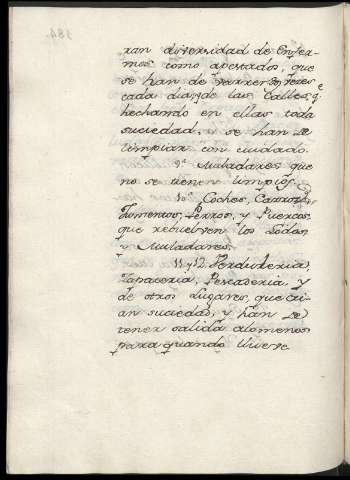 ran diversidad de enfer-
mos como apestados, que
se han de varrer dos veces
cada dia, y de las Calles, q.e
hechando en ellas toda
suciedad, se han de
limpiar con cuidado.
9.a Muladares que
no se tienen limpios.
10.a Coches, Carros,
Jumentos, Perros, y Puercos,
que rebuelven los Lodos
y Muladares.
11 y 12. Verduleria,
Zapateria, Pescaderia, y
de otros Lugares, que cri-
an suciedad, y han de
tener salida alomenos
para quando llueve